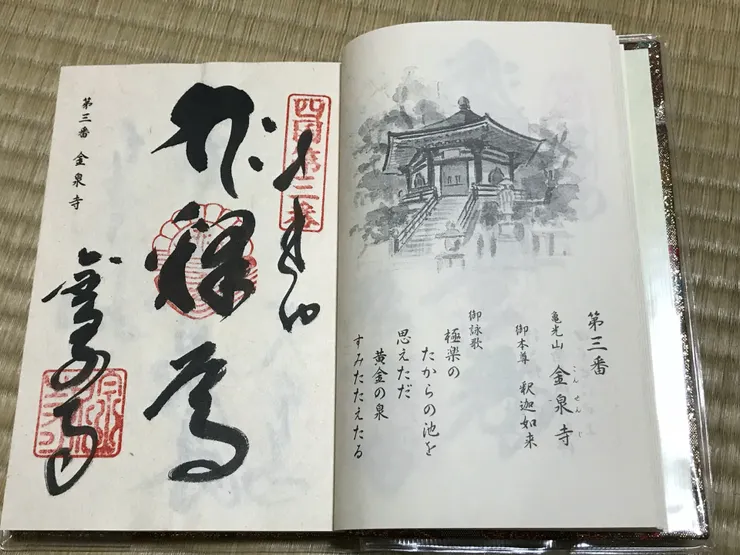 第三番
亀光山 金泉寺
こんせんじ
御本尊 釈迦如来
御詠歌
極楽の
たからの池を
思えただ
黄金の泉
すみたたえたる
四国第三番
第三番 金泉寺
金泉寺